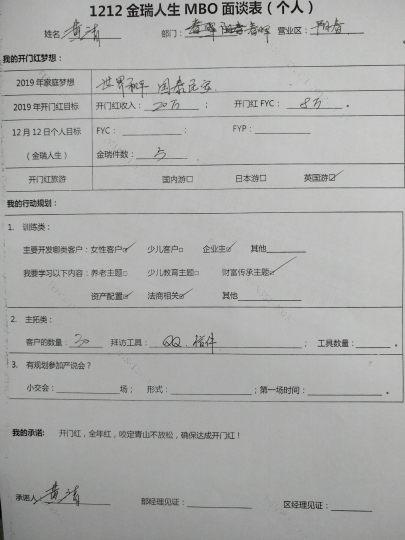 1212 金瑞人生 MBO 面谈表（个人）
姓名 黄清 部门： 春晖 营业区：
我的开门红梦想：
2019 年家庭梦想 世界和平 国泰民安
2019 年开门红目标 开门红收入： 20万 ； 开门红 FYC： 8万 。
12 月 12 日个人目标 FYC： ； FYP： 。
（金瑞人生） 金瑞件数： 5
开门红旅游 国内游□ 日本游□ 英国游☑
我的行动规划：
1. 训练类：
主要开发哪类客户：女性客户☑ 少儿客户□ 企业主☑ 其他
我要学习以下内容：养老主题□ 少儿教育主题□ 财富传承主题☑
资产配置☑ 法商相关☑ 其他
2. 主拓类：
客户的数量： 30 拜访工具： QQ、 ； 工具数量： 。
3. 有规划参加产说会？
小交会： 场； 形式： ；第一场时间： 。
我的承诺： 开门红，全年红，咬定青山不放松，确保达成开门红！
承诺人： 黄清 部经理见证： 区经理见证：